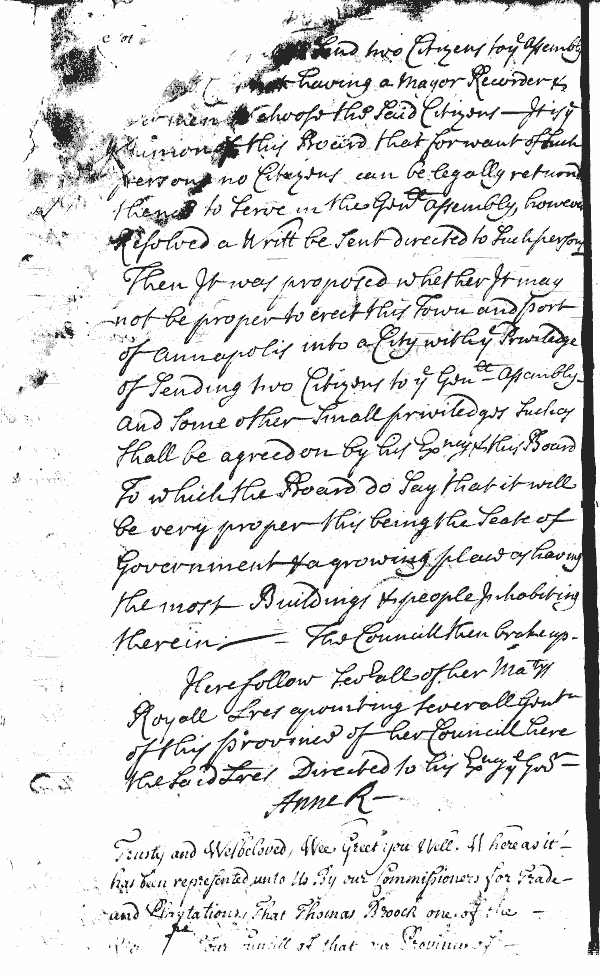 Send two Citizens to yͤ Assembly
having a Mayor Recorder &
Choose the Said Citizens — It is yͤ
Opinion of this Board that for want of Such
persons no Citizens can be legally returned
thence to Serve in the Genˡˡ Assembly, however
Resolved a Writt be Sent directed to Such persons
Then It was proposed whether It may
not be proper to erect this Town and Port
of Annapolis into a City with yͤ Priviledge
of Sending two Citizens to yͤ Genˡˡ Assembly
and Some other Small priviledges Such as
Shall be agreed on by his Exncy & this Board
To which the Board do Say that it will
be very proper this being the Seate of
Government & a growing place as having
the most Buildings & people Inhabiting
therein — The Councill then brake up.
Here follow Sevˡall of her Maᵗʸˢ
Royall Lres apointing Severall Gentⁿ
of this Province of her Councill here
the Said Lres Directed to his Exncy yͤ Govʳ
Anne R
Trusty and Welbeloved, Wee Greet you Well. Whereas it
has been represented unto Us By our Commissioners for Trade
and Plantations That Thomas Broock one of the
Councill of that our Province of